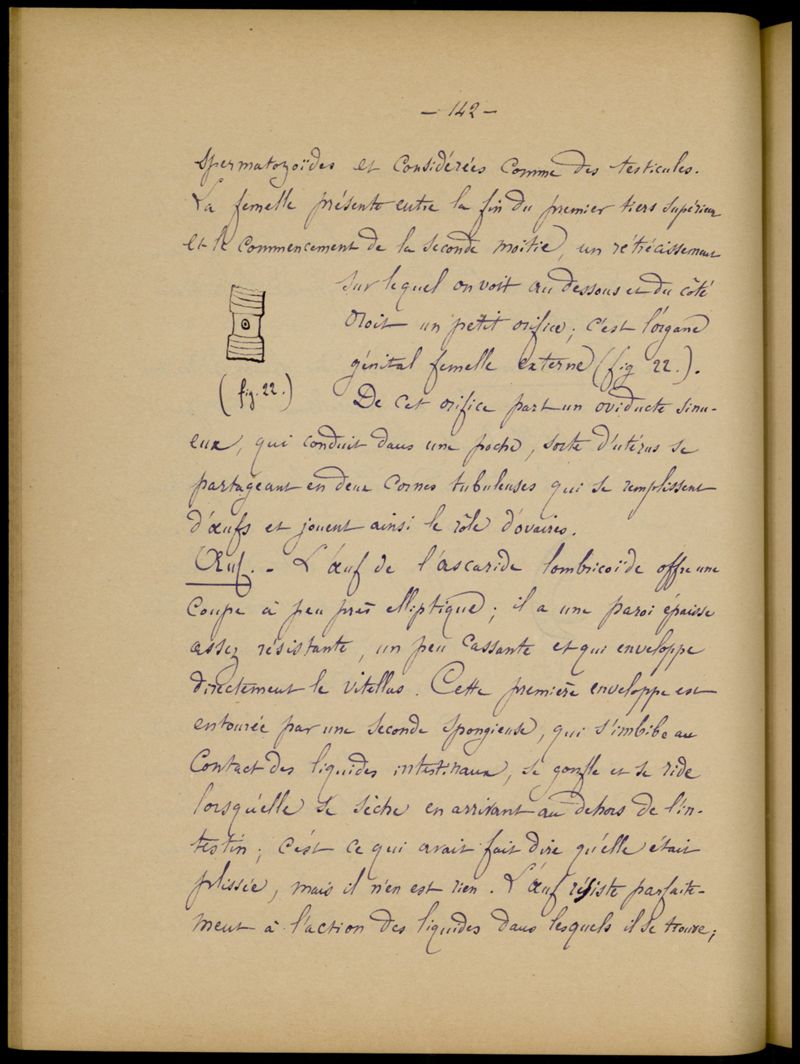 — 142 —
spermatozoïdes et considérées comme des testicules.
La femelle présente entre la fin du premier tiers supérieur
et le commencement de la seconde moitié, un rétrécissement
sur lequel on voit au dessous et du côté
droit un petit orifice; c'est l'organe
génital femelle externe (fig 22.).
(fig. 22.)
De cet orifice part un oviducte sinu-
eux, qui conduit dans une poche, sorte d'utérus se
partageant en deux cornes tubuleuses qui se remplissent
d'œufs et jouent ainsi le rôle d'ovaires.
Œuf. - L'œuf de l'ascaride lombricoïde offre une
coupe à peu près elliptique; il a une paroi épaisse
assez résistante, un peu cassante et qui enveloppe
directement le vitellus. Cette première enveloppe est
entourée par une seconde spongieuse, qui s'imbibe au
contact des liquides intestinaux, se gonfle et se ride
lorsqu'elle se sèche en arrivant au dehors de l'in-
testin; c'est ce qui avait fait dire qu'elle était
plissée, mais il n'en est rien. L'œuf résiste parfaite-
ment à l'action des liquides dans lesquels il se trouve;